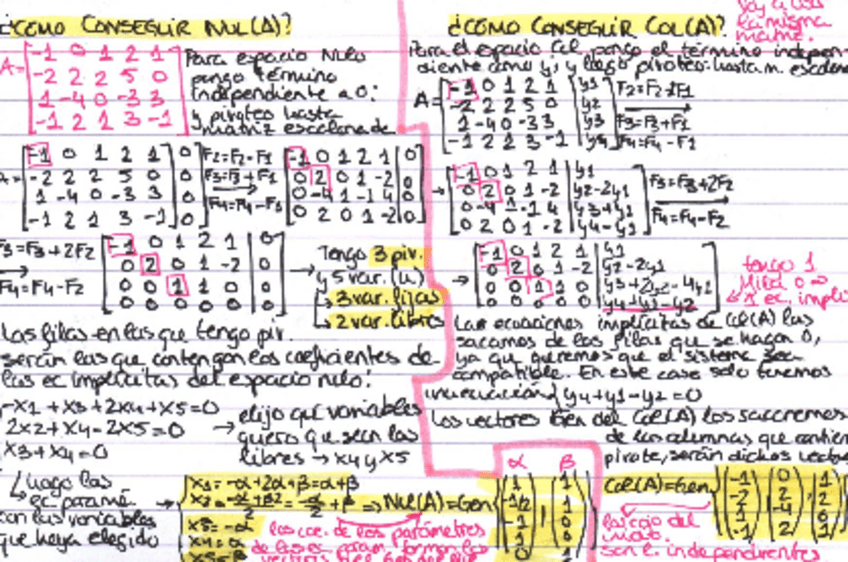 ¿CÓMO CONSEGUIR NUL(A)?
A=
-1 0 1 2 1
-2 2 2 5 0
1 -4 0 -3 3
-1 2 1 3 -1
Para espacio Nulo
pongo término
independiente a 0:
y pivoteo hasta
matriz escalonada
-1 0 1 2 1 | 0
-2 2 2 5 0 | 0
1 -4 0 -3 3 | 0
-1 2 1 3 -1 | 0
F2=F2-F1
F3=F3+F1
F4=F4-F1
-1 0 1 2 1 | 0
0 2 0 1 -2 | 0
0 -4 1 -1 4 | 0
0 2 0 1 -2 | 0
F3=F3+2F2
F4=F4-F2
-1 0 1 2 1 | 0
0 2 0 1 -2 | 0
0 0 1 1 0 | 0
0 0 0 0 0 | 0
→ Tengo 3 piv.
y 5 var. (u)
3 var. fijas
2 var. libres
Las filas en las que tengo piv.
serán las que contengan los coeficientes de
las ec implícitas del espacio nulo:
-X1 + X3 + 2X4 + X5 = 0
2X2 + X4 - 2X5 = 0
X3 + X4 = 0
→ elijo qué variables
quiero que sean las
libres → X4 y X5
luego las
ec. paramé.
con las variables
que haya elegido
X1 = -α+2α+β = α+β
X3 = -α
X4 = α
X5 = β
⇒ Nul(A)=Gen
α β
1 1
-1/2 1
-1 0
1 0
0 1
los coe. de los parámetros
¿CÓMO CONSEGUIR COL(A)?
la misma
Para el espacio Col pongo el término indepen-
diente como y, y luego pivoteo hasta m. escalon
A=
-1 0 1 2 1 | y1
-2 2 2 5 0 | y2
1 -4 0 -3 3
-1 2 1 3 -1 | y4
F3=F3+F1
F4=F4-F1
→
-1 0 1 2 1 | y1
0 2 0 1 -2 | y2-2y1
0 -4 1 -1 4 | y3+y1
0 2 0 1 -2 | y4-y1
F3=F3+2F2
F4=F4-F2
→
-1 0 1 2 1 | y1
0 2 0 1 -2 | y2-2y1
0 0 1 1 0
0 0 0 0 0 | y4+y1-y2
tengo 1
1 ec. implí
Las ecuaciones implícitas de Col(A) las
sacamos de las filas que se hagan 0,
ya que queremos que el sistema sea
compatible. En este caso solo tenemos
una ecuación { y4+y1-y2=0
los vectores Gen del Col(A) los sacaremos
de las columnas que contien
pivote, serán dichos vecto
Col(A)=Gen
-1 0 1
-2 2 2
1 -4 0
-1 2 1
son l. independientes